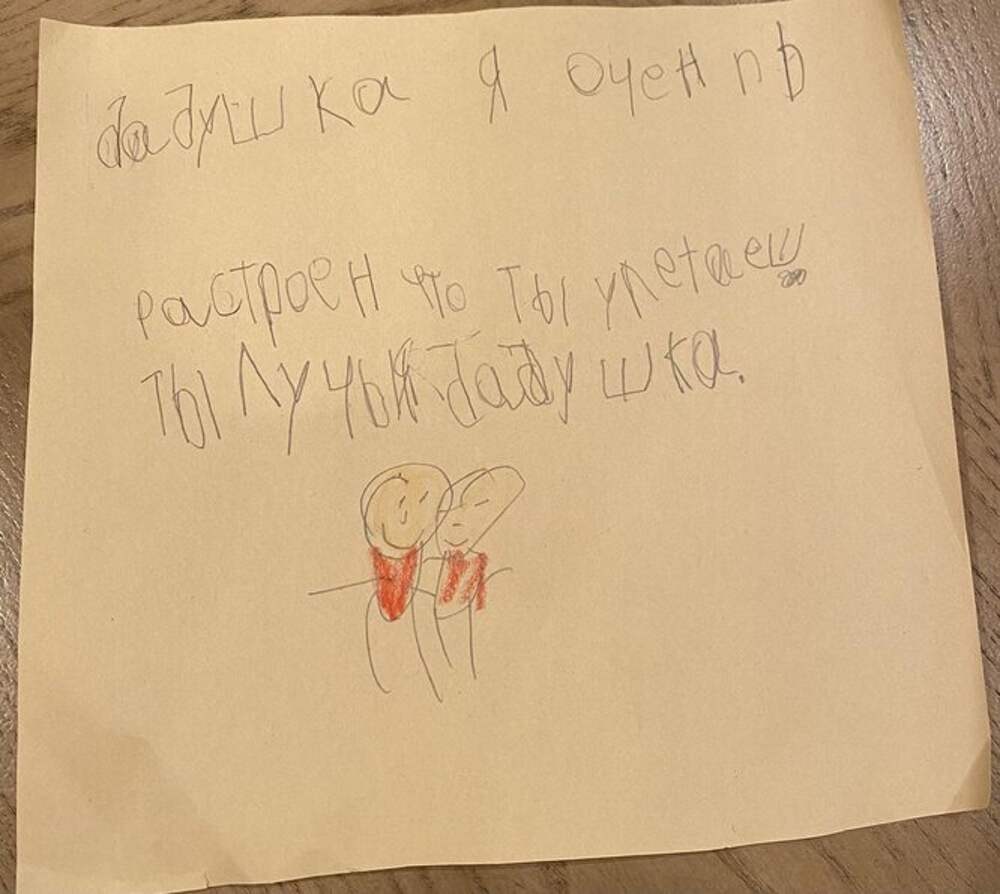 дадушка я оченпь
растроен что ты улетаеш
ты лучый дадушка.